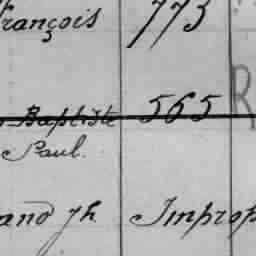 rançois 773
Baptiste 565 R
Paul.
and Jh. Improp